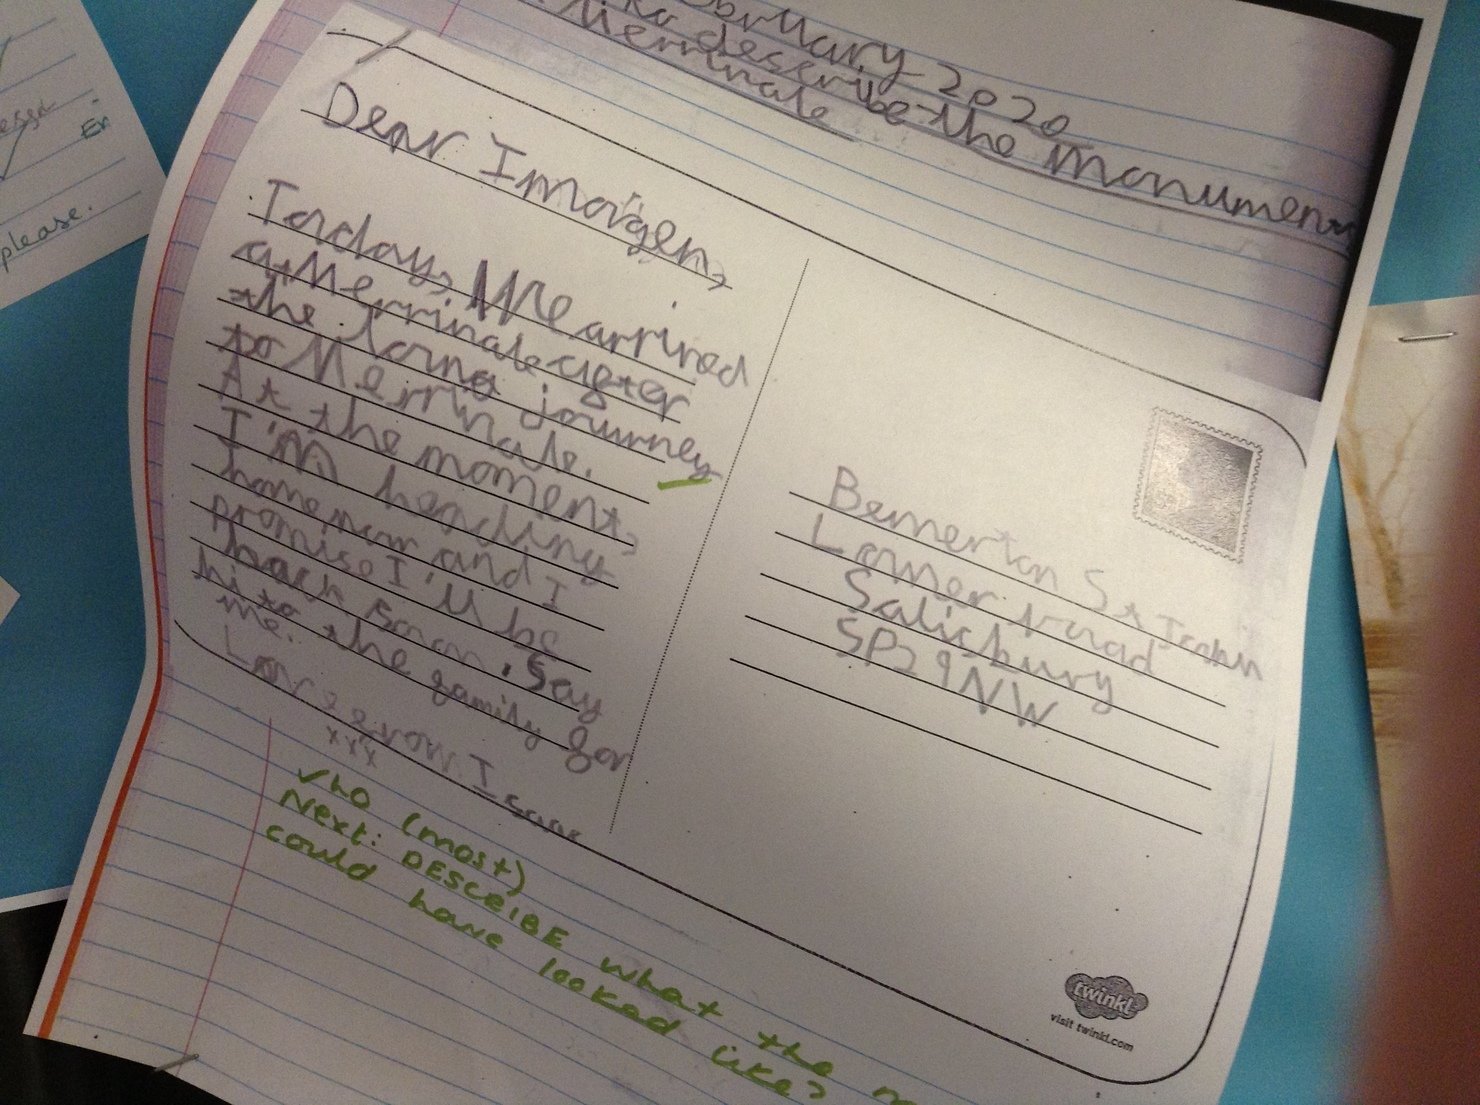 2020
to describe the monument
Merrivale
Dear Imogen,
Today, We arrived
at Merrivale after
the long journey
to Merrivale.
At the moment,
I'm heading
home now and I
promise I'll be
back soon. Say
hi to the family for
me.
Love from Isaac
xxx
Bemerton St John
Lower road
Salisbury
SP29NW
twinkl
visit twinkl.com
who (most)
Next: DESCRIBE what the
could have looked like?
please.